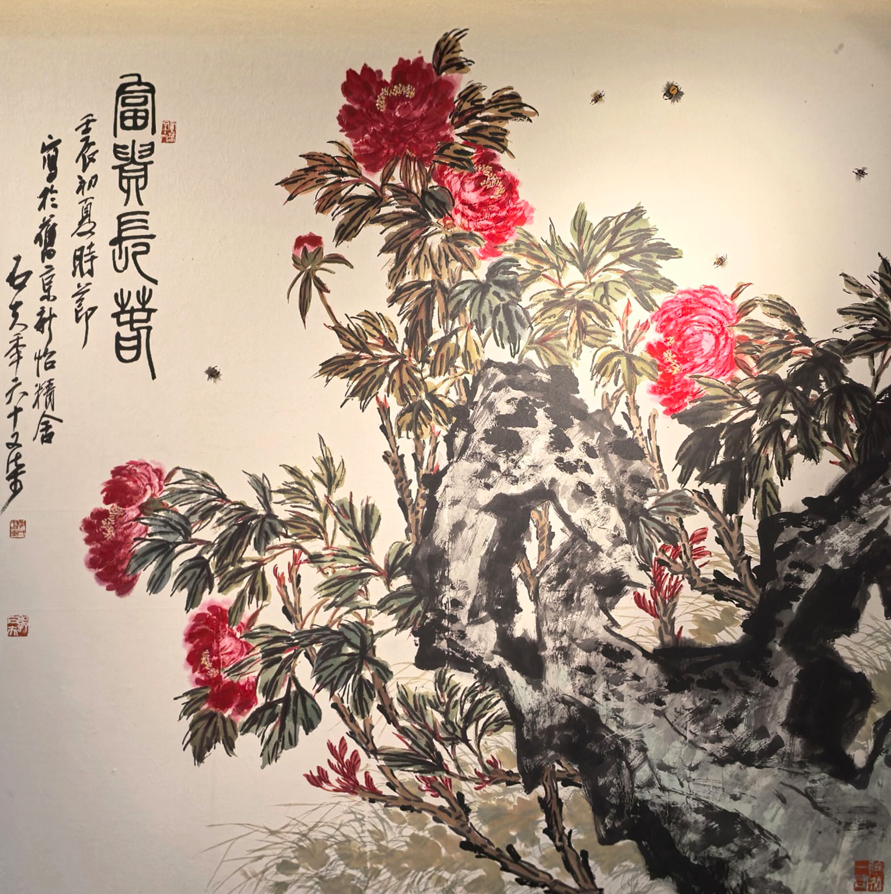 富貴長春
壬辰初夏時節
寫於舊京新怡精舍
石夫年六十又